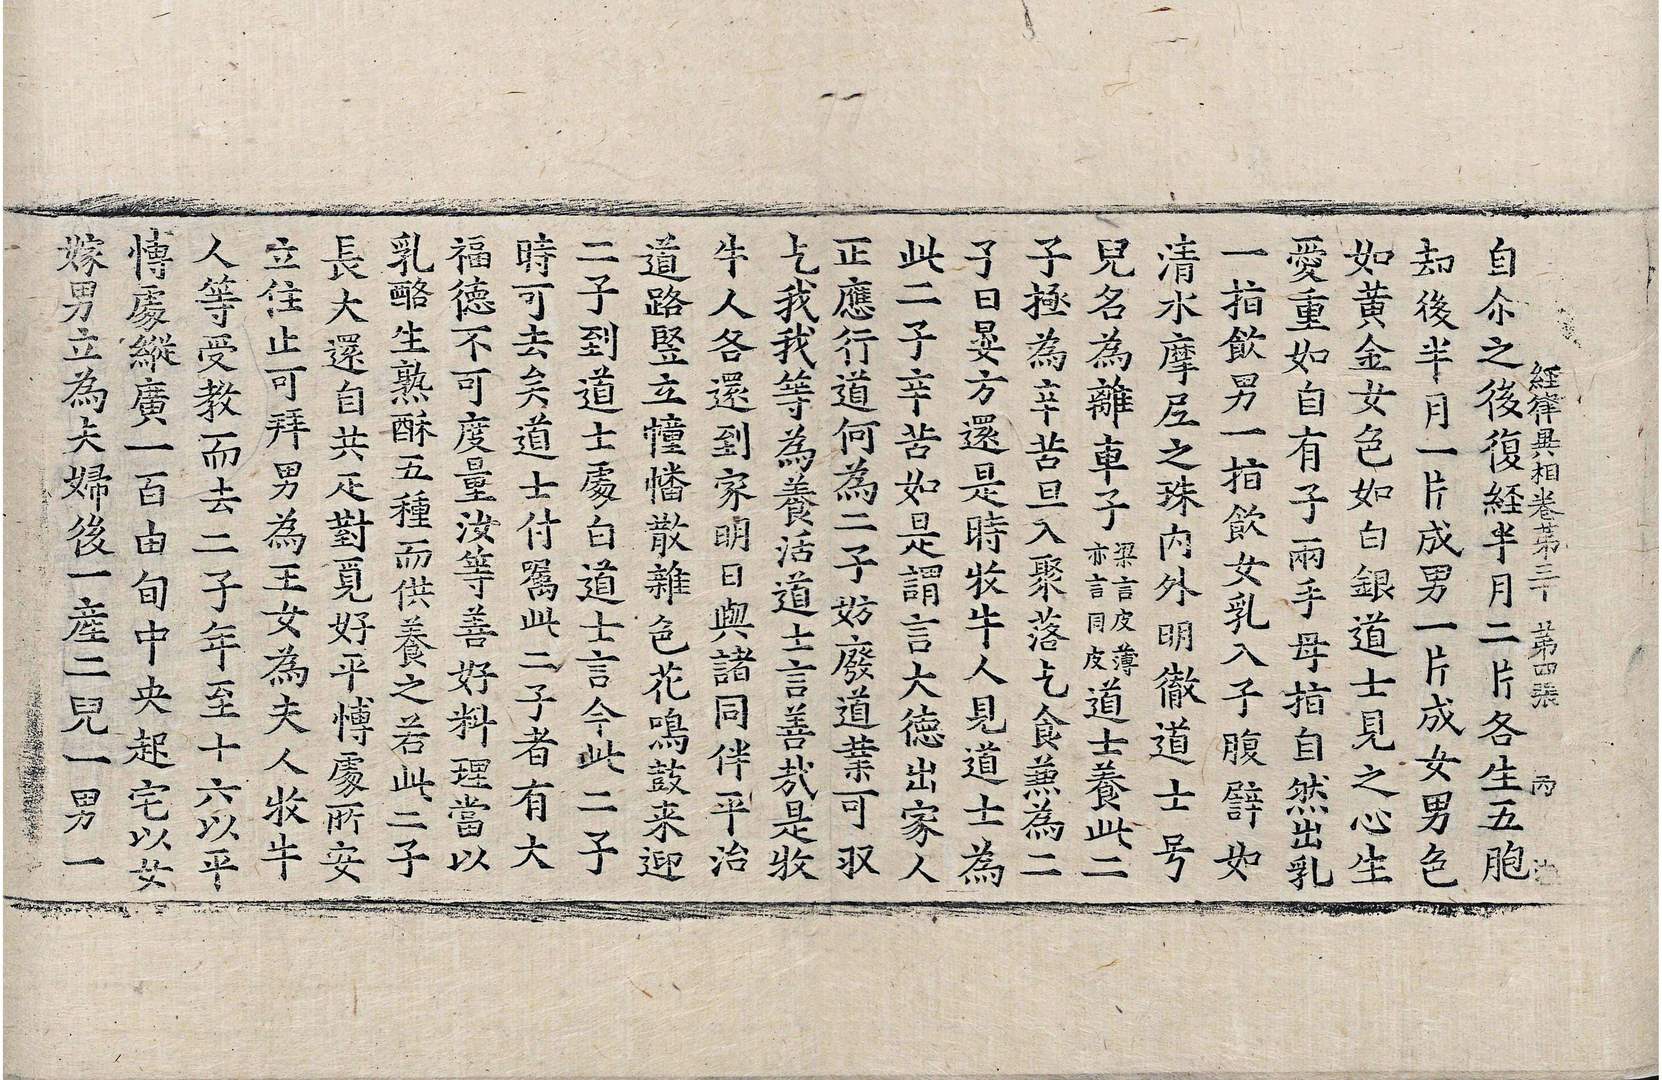 經律異相卷第三十 第四張 丙
自尒之後復経半月二片各生五胞
却後半月一片成男一片成女男色
如黄金女色如白銀道士見之心生
愛重如自有子兩手母指自然出乳
一指飲男一指飲女乳入子腹譬如
清水摩尼之珠内外明徹道士号
兒名為離車子梁言皮薄亦言同皮道士養此二
子極為辛苦旦入聚落乞食兼為二
子日晏方還是時牧牛人見道士為
此二子辛苦如是謂言大德出家人
正應行道何為二子妨廢道業可㕛
乞我我等為養活道士言善㢤是牧
牛人各還到家明日與諸同伴平治
道路竪立幢幡散雜色花鳴鼓来迎
二子到道士處白道士言今此二子
時可去矣道士付囑此二子者有大
福德不可度量汝等善好料理當以
乳酪生熟酥五種而供養之若此二子
長大還自共疋對覓好平愽處所安
立住止可拜男為王女為夫人牧牛
人等受教而去二子年至十六以平
愽處縱廣一百由旬中央起宅以女
嫁男立為夫婦後一産二兒一男一